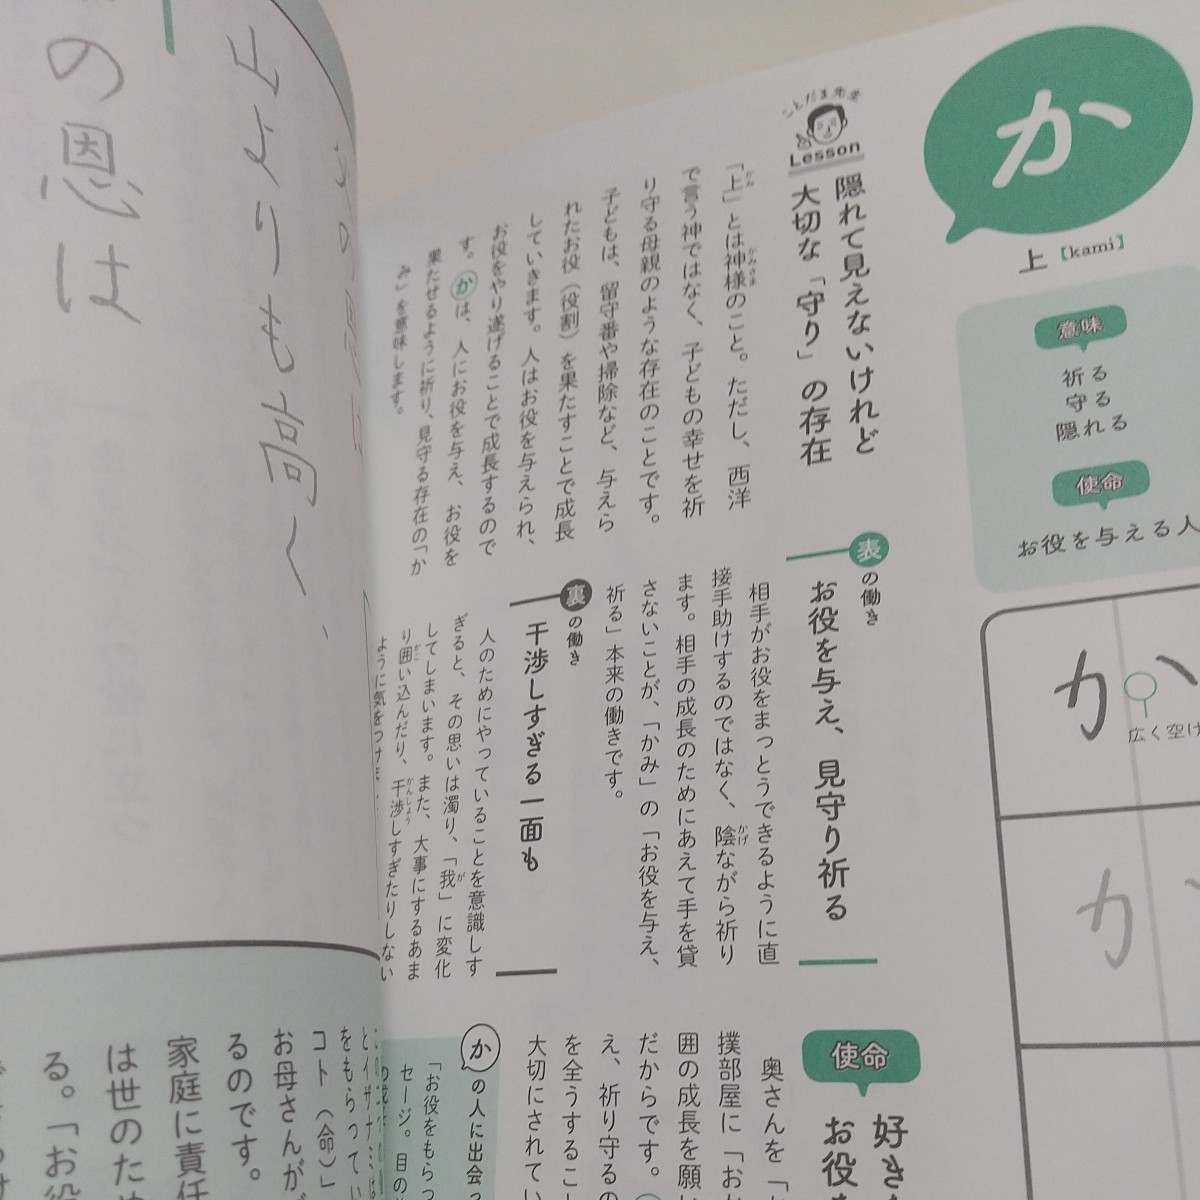 か
上【kami】
意味
祈る
守る
隠れる
使命
お役を与える人
か
広く空け
か
ことだま先生
Lesson
隠れて見えないけれど
大切な「守り」の存在
「上」とは神様のこと。ただし、西洋
で言う神ではなく、子どもの幸せを祈
り守る母親のような存在のことです。
子どもは、留守番や掃除など、与えら
れたお役（役割）を果たすことで成長
していきます。人はお役を与えられ、
お役をやり遂げることで成長するので
す。かは、人にお役を与え、お役を
果たせるように祈り、見守る存在の「か
み」を意味します。
表の働き
お役を与え、見守り祈る
相手がお役をまっとうできるように直
接手助けするのではなく、陰ながら祈り
ます。相手の成長のためにあえて手を貸
さないことが、「かみ」の「お役を与え、
祈る」本来の働きです。
裏の働き
干渉しすぎる一面も
人のためにやっていることを意識しす
ぎると、その思いは濁り、「我」に変化
してしまいます。また、大事にするあま
り囲い込んだり、干渉しすぎたりしない
ように気をつけま
使命
好き
お役
奥さんを「
撲部屋に「お
囲の成長を願
だからです。
え、祈り守るの
を全うするこ
大切にされてい
かの人に出会
「お役をもらっ
セージ。目の
山よりも高く、
の恩は
とイザナミ
をもらってい
コト（命）」
お母さんが
るのです。
家庭に責任
は世のため
る。「お役